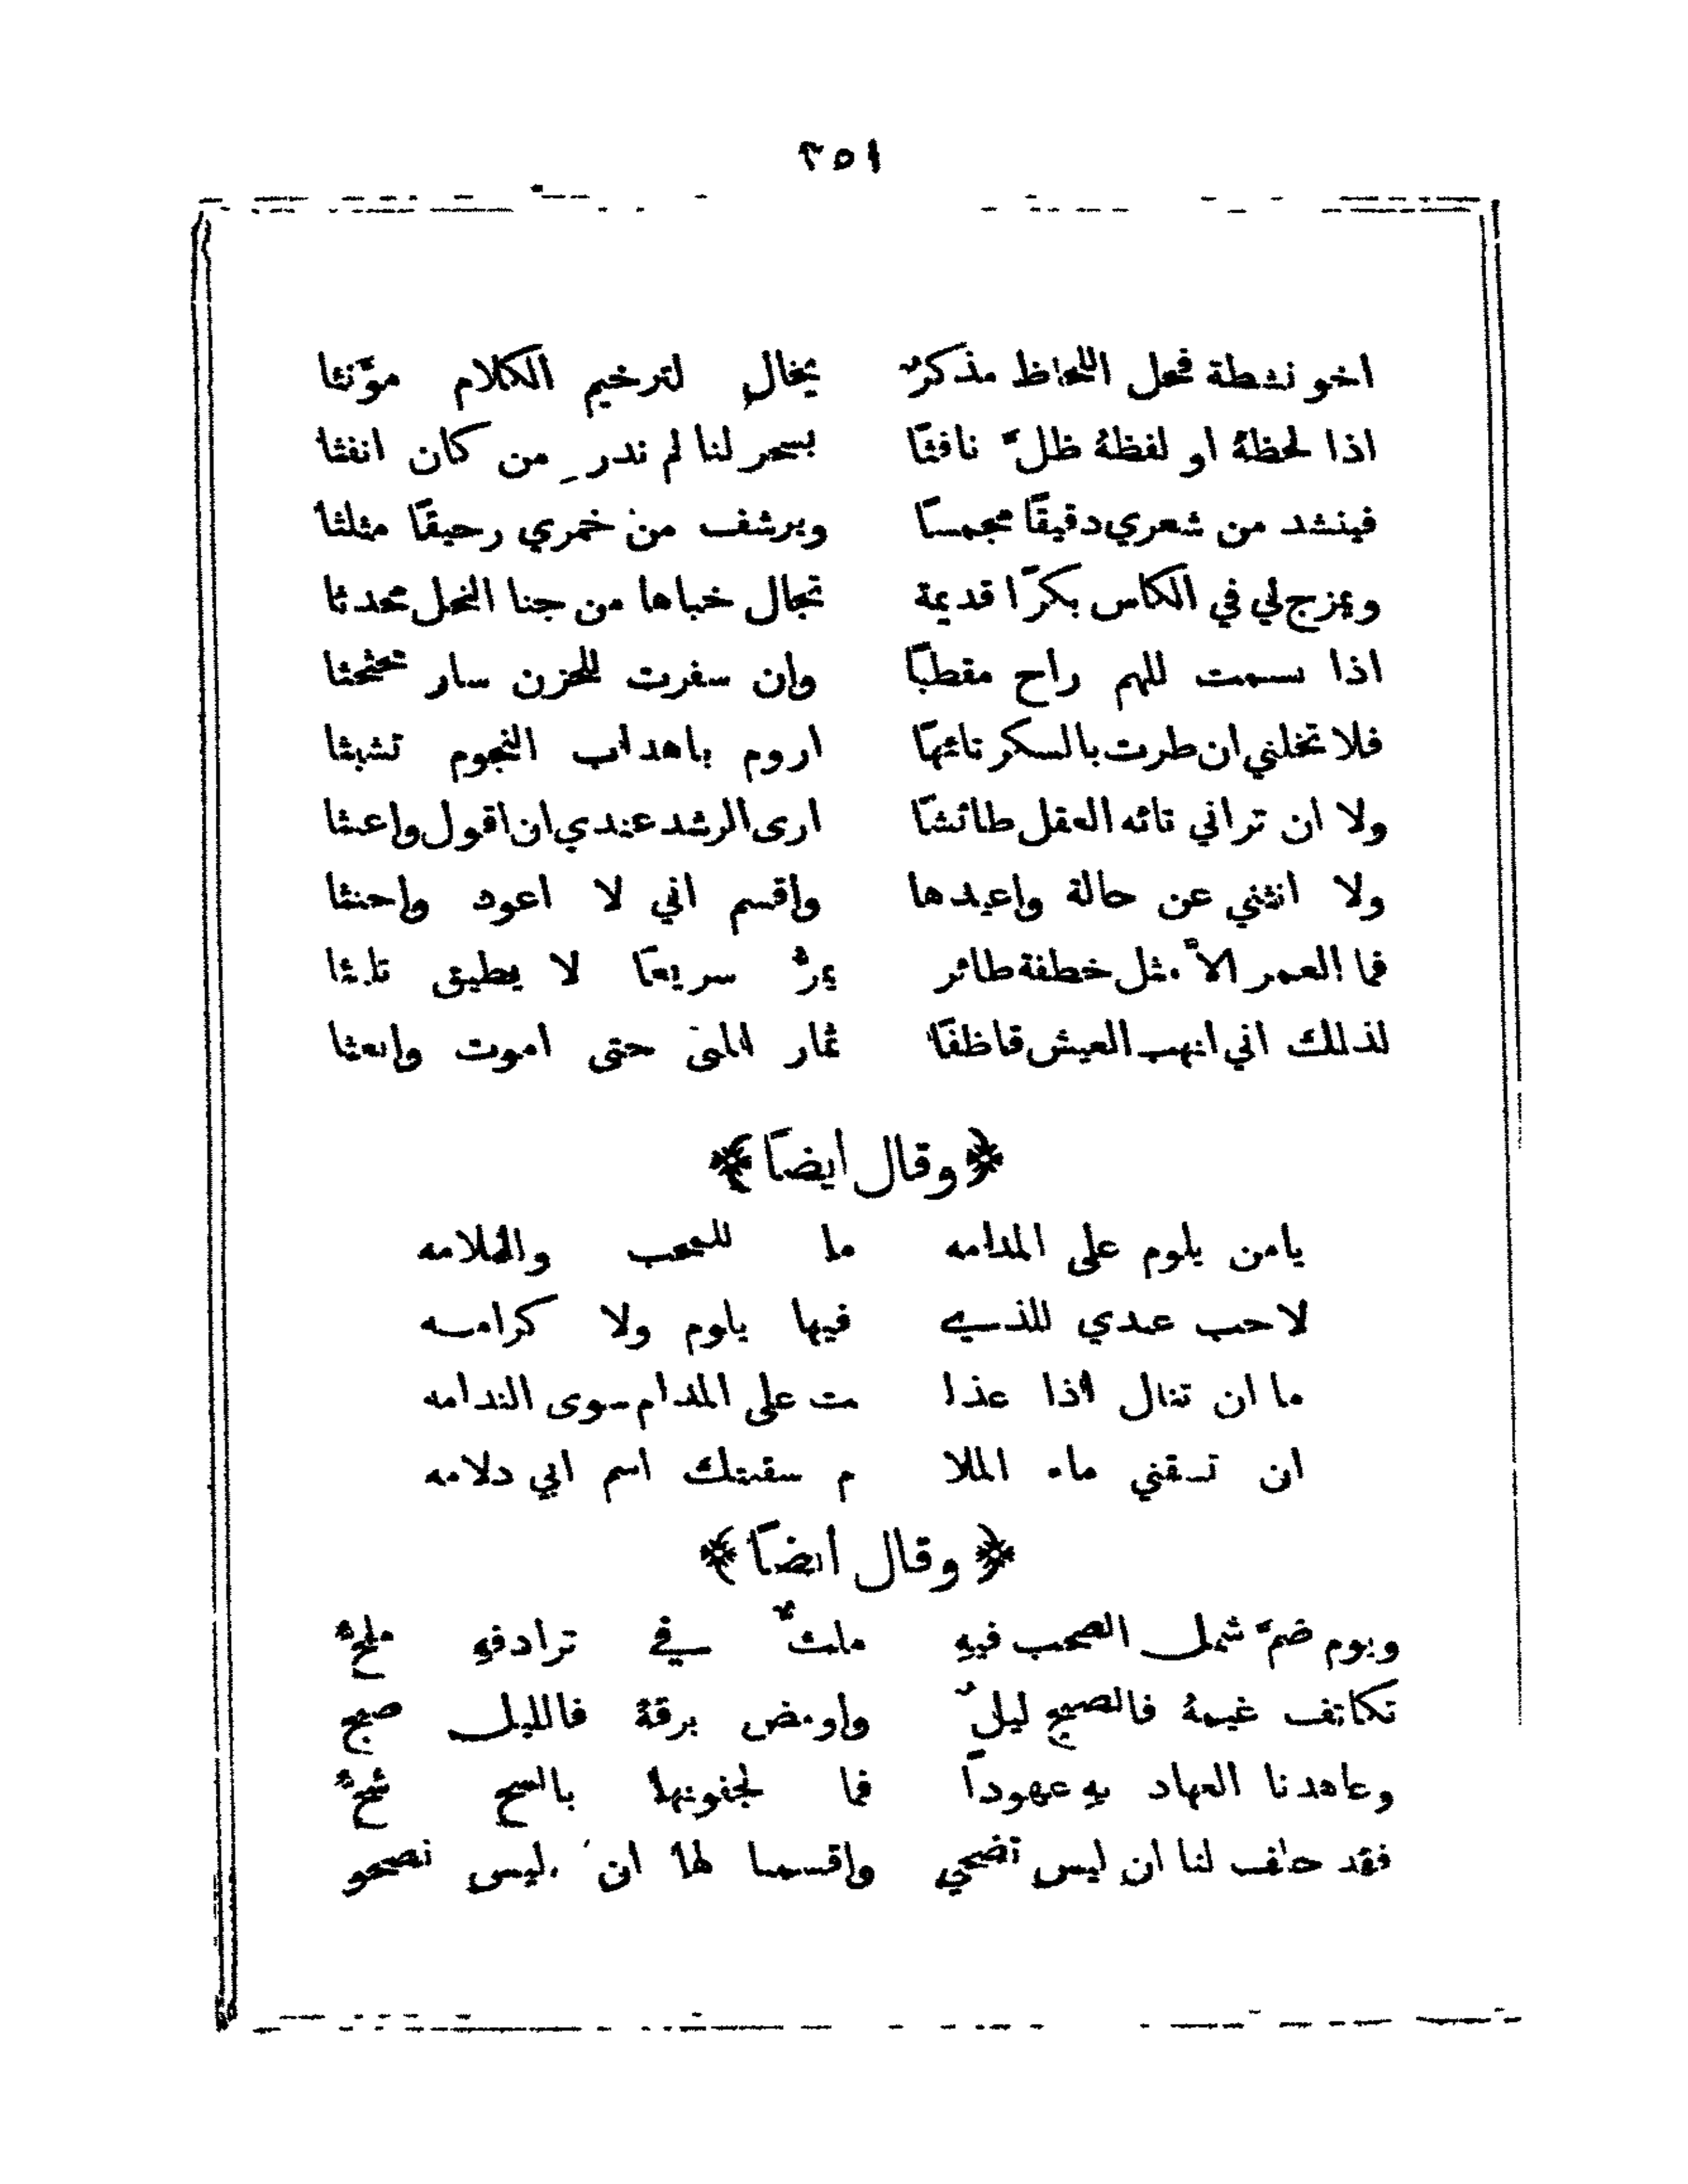 ٢٥١
اخو نشطة فحل اللحاظ مذكرٌ يخال لترخيم الكلام مؤنثا
اذا لحظهُ او لفظهُ ظلَّ نافثًا بسحر لنا لم ندرِ من كان انفثا
فينشد من شعري دقيقًا مجمسًا ويرشف من خمري رحيقًا مثلثا
ويمزج لي في الكاس بكرًا قديمة تجال خباها من جنا النحل محدثا
اذا بسمت للهم راح مقطبًا وان سفرت للحزن سار تحثحثا
فلا تخلني ان طرت بالسكر تائهًا اروم باهداب النجوم تشبثا
ولا ان تراني تائه العقل طائشًا ارى الرشد عندي ان اقول واعبثا
ولا انثني عن حالة واعيدها واقسم اني لا اعود واحنثا
فما العمر الاَّ مثل خطفة طائر يمرُّ سريعًا لا يطيق تلبثا
لذلك اني انهب العيش قاطفًا ثمار المنى حتى اموت وابعثا
﴿وقال أيضاً﴾
يامن يلوم على المدامه ما للمحب والملامه
لا حب عندي للذي فيها يلوم ولا كرامه
ما ان تنال اذا عذا مت على المدام سوى الندامه
ان تسقني ماء الملا م سقيتك اسم ابي دلامه
﴿وقال أيضاً﴾
ويوم ضمَّ شمل الصحب فيهِ ملثٌ في ترادفهِ ملحُّ
تكاثف غيمهُ فالصبح ليلٌ واومض برقهُ فالليل صبح
وعاهدنا العهاد بهِ عهوداً فما لجفونها بالسح شحُّ
فقد حلفت لنا ان ليس تضحي واقسمنا لها ان ليس نصحو